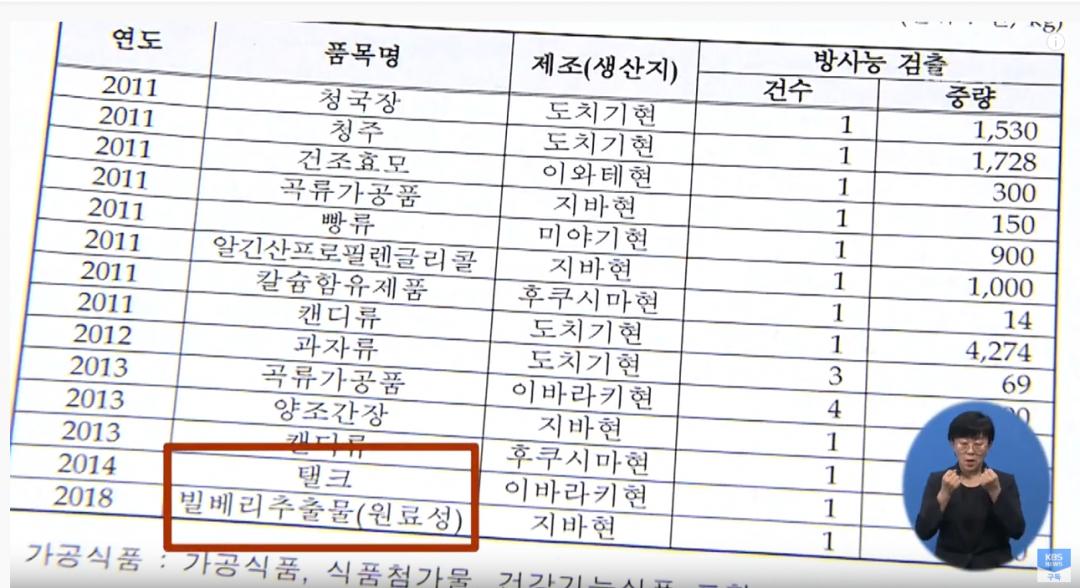 연도 품목명 제조(생산지) 방사능 검출
건수 중량
2011 청국장 도치기현 1 1,530
2011 청주 도치기현 1 1,728
2011 건조효모 이와테현 1 300
2011 곡류가공품 지바현 1 150
2011 빵류 미야기현 1 900
2011 알긴산프로필렌글리콜 지바현 1 1,000
2011 칼슘함유제품 후쿠시마현 1 14
2011 캔디류 도치기현 1 4,274
2012 과자류 도치기현 3 69
2013 곡류가공품 이바라키현 4
2013 양조간장 지바현 1
2013 캔디류 후쿠시마현 1
2014 탤크 이바라키현 1
2018 빌베리추출물(원료성) 지바현 1
가공식품 : 가공식품, 식품첨가물, 건강기능식품
KBS
NEWS
구독